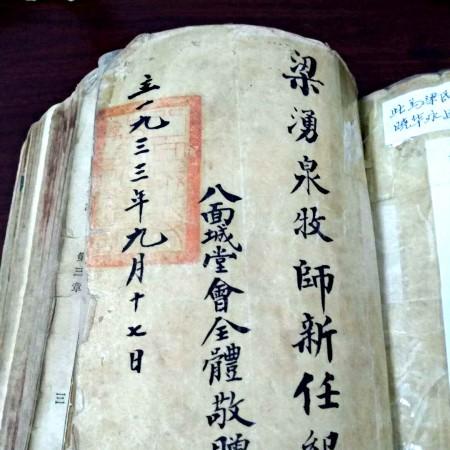 梁湧泉牧師新任
八面城堂會全體敬贈
主一九三三年九月十七日
第三章
三
此為梁民